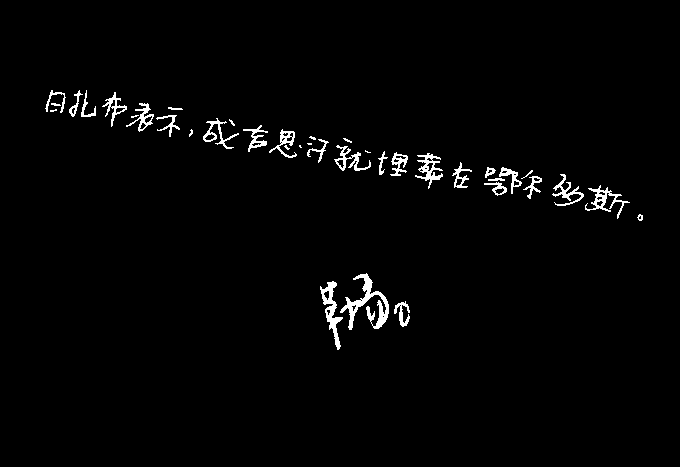 日扎布表示，成吉思汗就埋葬在鄂尔多斯。